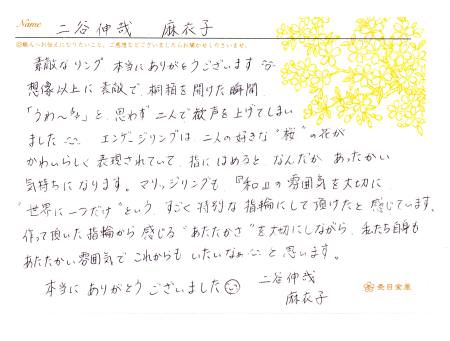 Name 二谷伸哉 麻衣子
素敵なリング 本当にありがとうございます
想像以上に素敵で、桐箱を開けた瞬間、
「うわ〜な」と、思わず二人で歓声を上げてしまい
ました。エンゲージリングは二人の好きな"桜"の花が
かわいらしく表現されていて、指にはめると なんだか あったかい
気持ちになります。マリッジリングも、『和』の雰囲気を大切に
"世界に一つだけ"という、すごく特別な指輪にして頂けたと感じています。
作って頂いた指輪から感じる"あたたかさ"を大切にしながら、私たち自身も
あたたかい雰囲気で これからも いたいなぁ と思います。
本当に ありがとう ございました
二谷伸哉
麻衣子